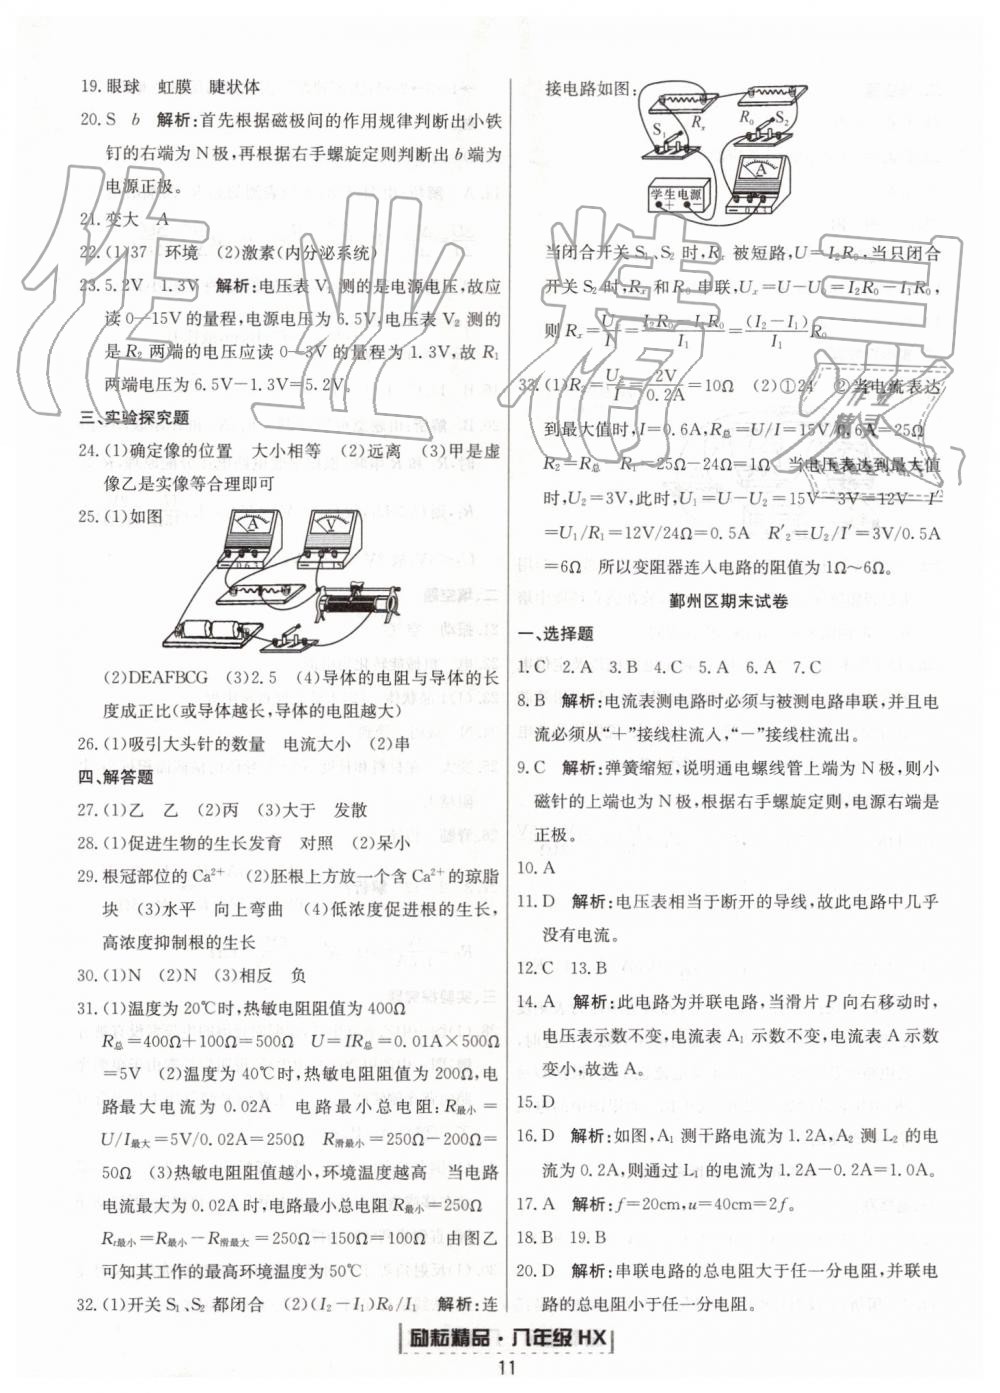 19.眼球　虹膜　睫状体
20.S　b　解析:首先根据磁极间的作用规律判断出小铁
钉的右端为N极,再根据右手螺旋定则判断出b端为
电源正极。
21.变大　A
22.(1)37　环境　(2)激素(内分泌系统)
23.5.2V　1.3V　解析:电压表V₁测的是电源电压,故应
读0—15V的量程,电源电压为6.5V,电压表V₂测的
是R₂两端的电压应读0—3V的量程为1.3V,故R₁
两端电压为6.5V-1.3V=5.2V。
三、实验探究题
24.(1)确定像的位置　大小相等　(2)远离　(3)甲是虚
像乙是实像等合理即可
25.(1)如图
A
V
(2)DEAFBCG　(3)2.5　(4)导体的电阻与导体的长
度成正比(或导体越长,导体的电阻越大)
26.(1)吸引大头针的数量　电流大小　(2)串
四、解答题
27.(1)乙　乙　(2)丙　(3)大于　发散
28.(1)促进生物的生长发育　对照　(2)呆小
29.根冠部位的Ca²⁺　(2)胚根上方放一个含Ca²⁺的琼脂
块　(3)水平　向上弯曲　(4)低浓度促进根的生长,
高浓度抑制根的生长
30.(1)N　(2)N　(3)相反　负
31.(1)温度为20℃时,热敏电阻阻值为400Ω
R总=400Ω+100Ω=500Ω　U=IR总=0.01A×500Ω
=5V　(2)温度为40℃时,热敏电阻阻值为200Ω,电
路最大电流为0.02A　电路最小总电阻:R最小=
U/I最大=5V/0.02A=250Ω　R滑最小=250Ω-200Ω=
50Ω　(3)热敏电阻阻值越小,环境温度越高　当电路
电流最大为0.02A时,电路最小总电阻R最小=250Ω
Rt最小=R最小-R滑最大=250Ω-150Ω=100Ω　由图乙
可知其工作的最高环境温度为50℃
32.(1)开关S₁、S₂都闭合　(2)(I₂-I₁)R₀/I₁　解析:连
接电路如图:
S₁　Rₓ　R₀　S₂
A
学生电源
+　-
当闭合开关S₁、S₂时,Rₓ被短路,U=I₂R₀,当只闭合
开关S₂时,Rₓ和R₀串联,Uₓ=U-U₀=I₂R₀-I₁R₀,
则Rₓ=Uₓ/I=(I₂R₀-I₁R₀)/I₁=(I₂-I₁)/I₁ R₀
33.(1)R₂=U₂/I=2V/0.2A=10Ω　(2)①24　②当电流表达
到最大值时,I=0.6A,R总=U/I=15V/0.6A=25Ω
R₂=R总-R₁=25Ω-24Ω=1Ω　当电压表达到最大值
时,U₂=3V,此时,U₁=U-U₂=15V-3V=12V　I′
=U₁/R₁=12V/24Ω=0.5A　R′₂=U₂/I′=3V/0.5A
=6Ω　所以变阻器连入电路的阻值为1Ω~6Ω。
鄞州区期末试卷
一、选择题
1.C　2.A　3.B　4.C　5.A　6.A　7.C
8.B　解析:电流表测电路时必须与被测电路串联,并且电
流必须从“+”接线柱流入,“-”接线柱流出。
9.C　解析:弹簧缩短,说明通电螺线管上端为N极,则小
磁针的上端也为N极,根据右手螺旋定则,电源右端是
正极。
10.A
11.D　解析:电压表相当于断开的导线,故此电路中几乎
没有电流。
12.C　13.B
14.A　解析:此电路为并联电路,当滑片P向右移动时,
电压表示数不变,电流表A₁示数不变,电流表A示数
变小,故选A。
15.D
16.D　解析:如图,A₁测干路电流为1.2A,A₂测L₂的电
流为0.2A,则通过L₁的电流为1.2A-0.2A=1.0A。
17.A　解析:f=20cm,u=40cm=2f。
18.B　19.B
20.D　解析:串联电路的总电阻大于任一分电阻,并联电
路的总电阻小于任一分电阻。
励耘精品·八年级HX
11
作业精灵